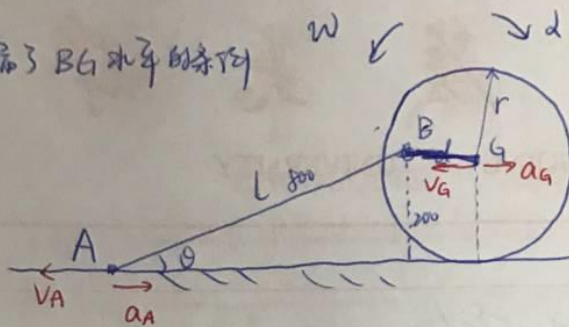 漏了 BG 水平的条件
W
α
r
B
d
G
V_G
a_G
L 800
200
A
θ
V_A
a_A